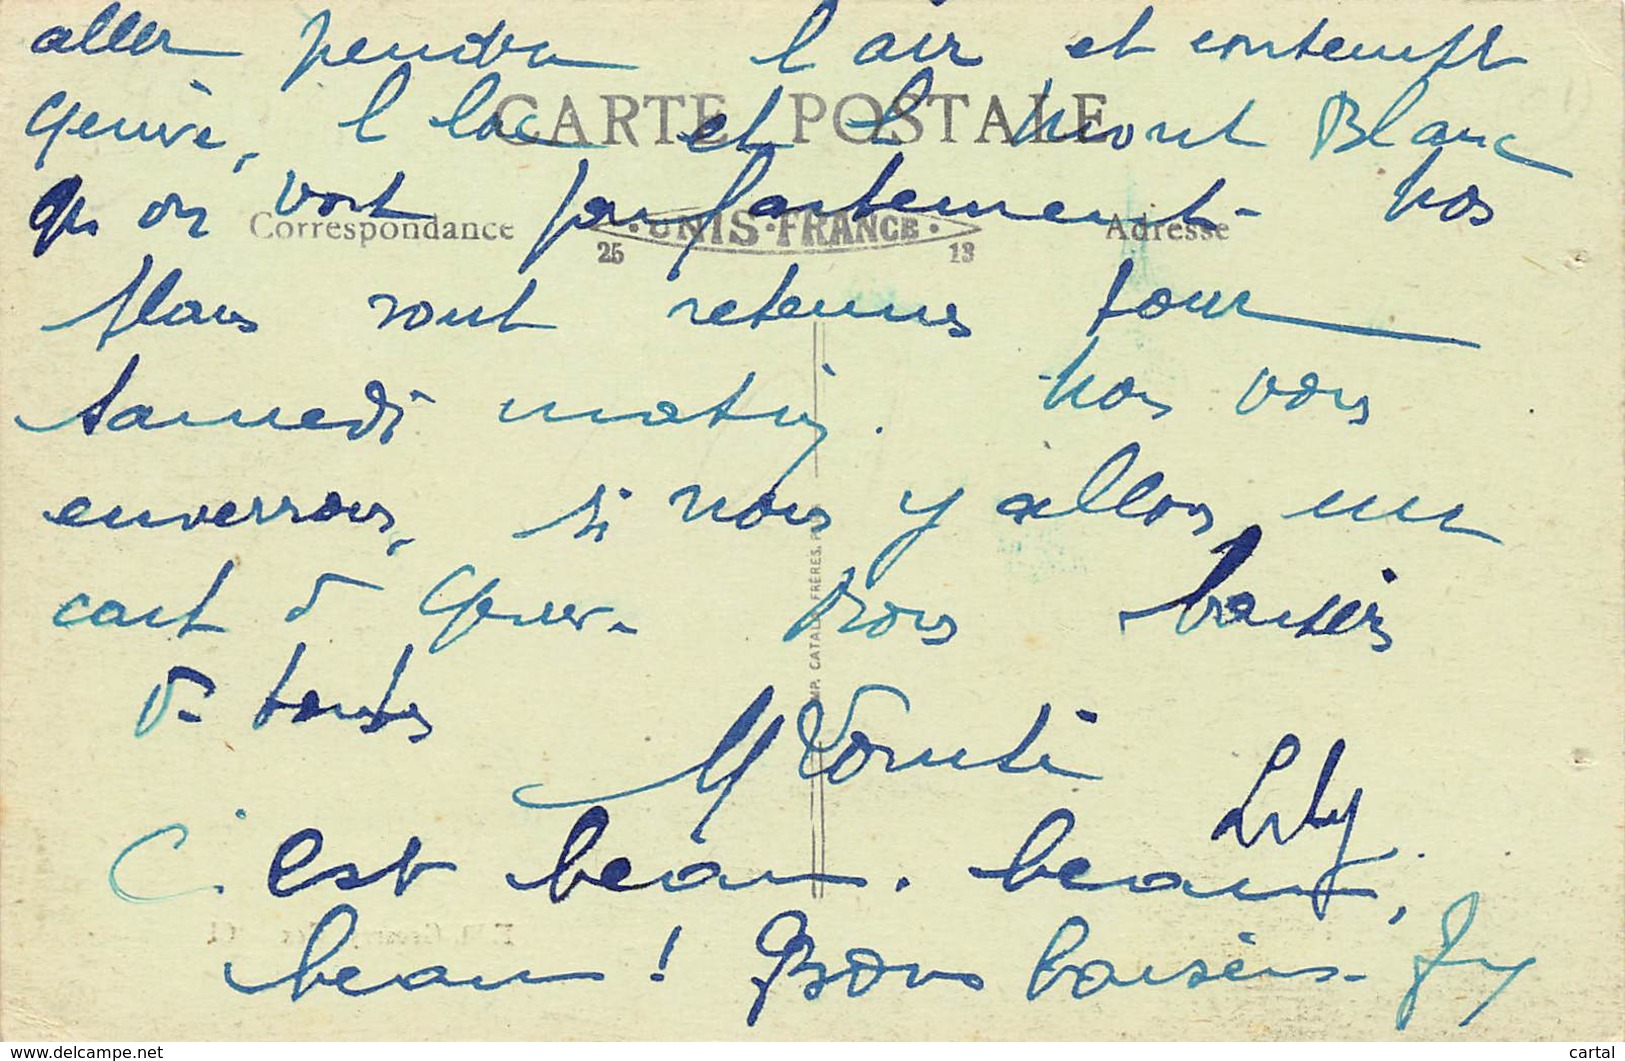 aller prendre l'air et contempler
CARTE POSTALE
Genève, le lac et le Mont Blanc
qu'on voit parfaitement - Nos
Correspondance
UNIS-FRANCE
25 13
Adresse
places sont retenues pour
Samedi matin. Nous vous
enverrons, si nous y allons, une
carte de Genève - Bons baisers
IMP. CATALA FRÈRES, P
de toutes
M
Lily
C'est beau, beau,
beau ! Bons baisers -
www.delcampe.net
cartal